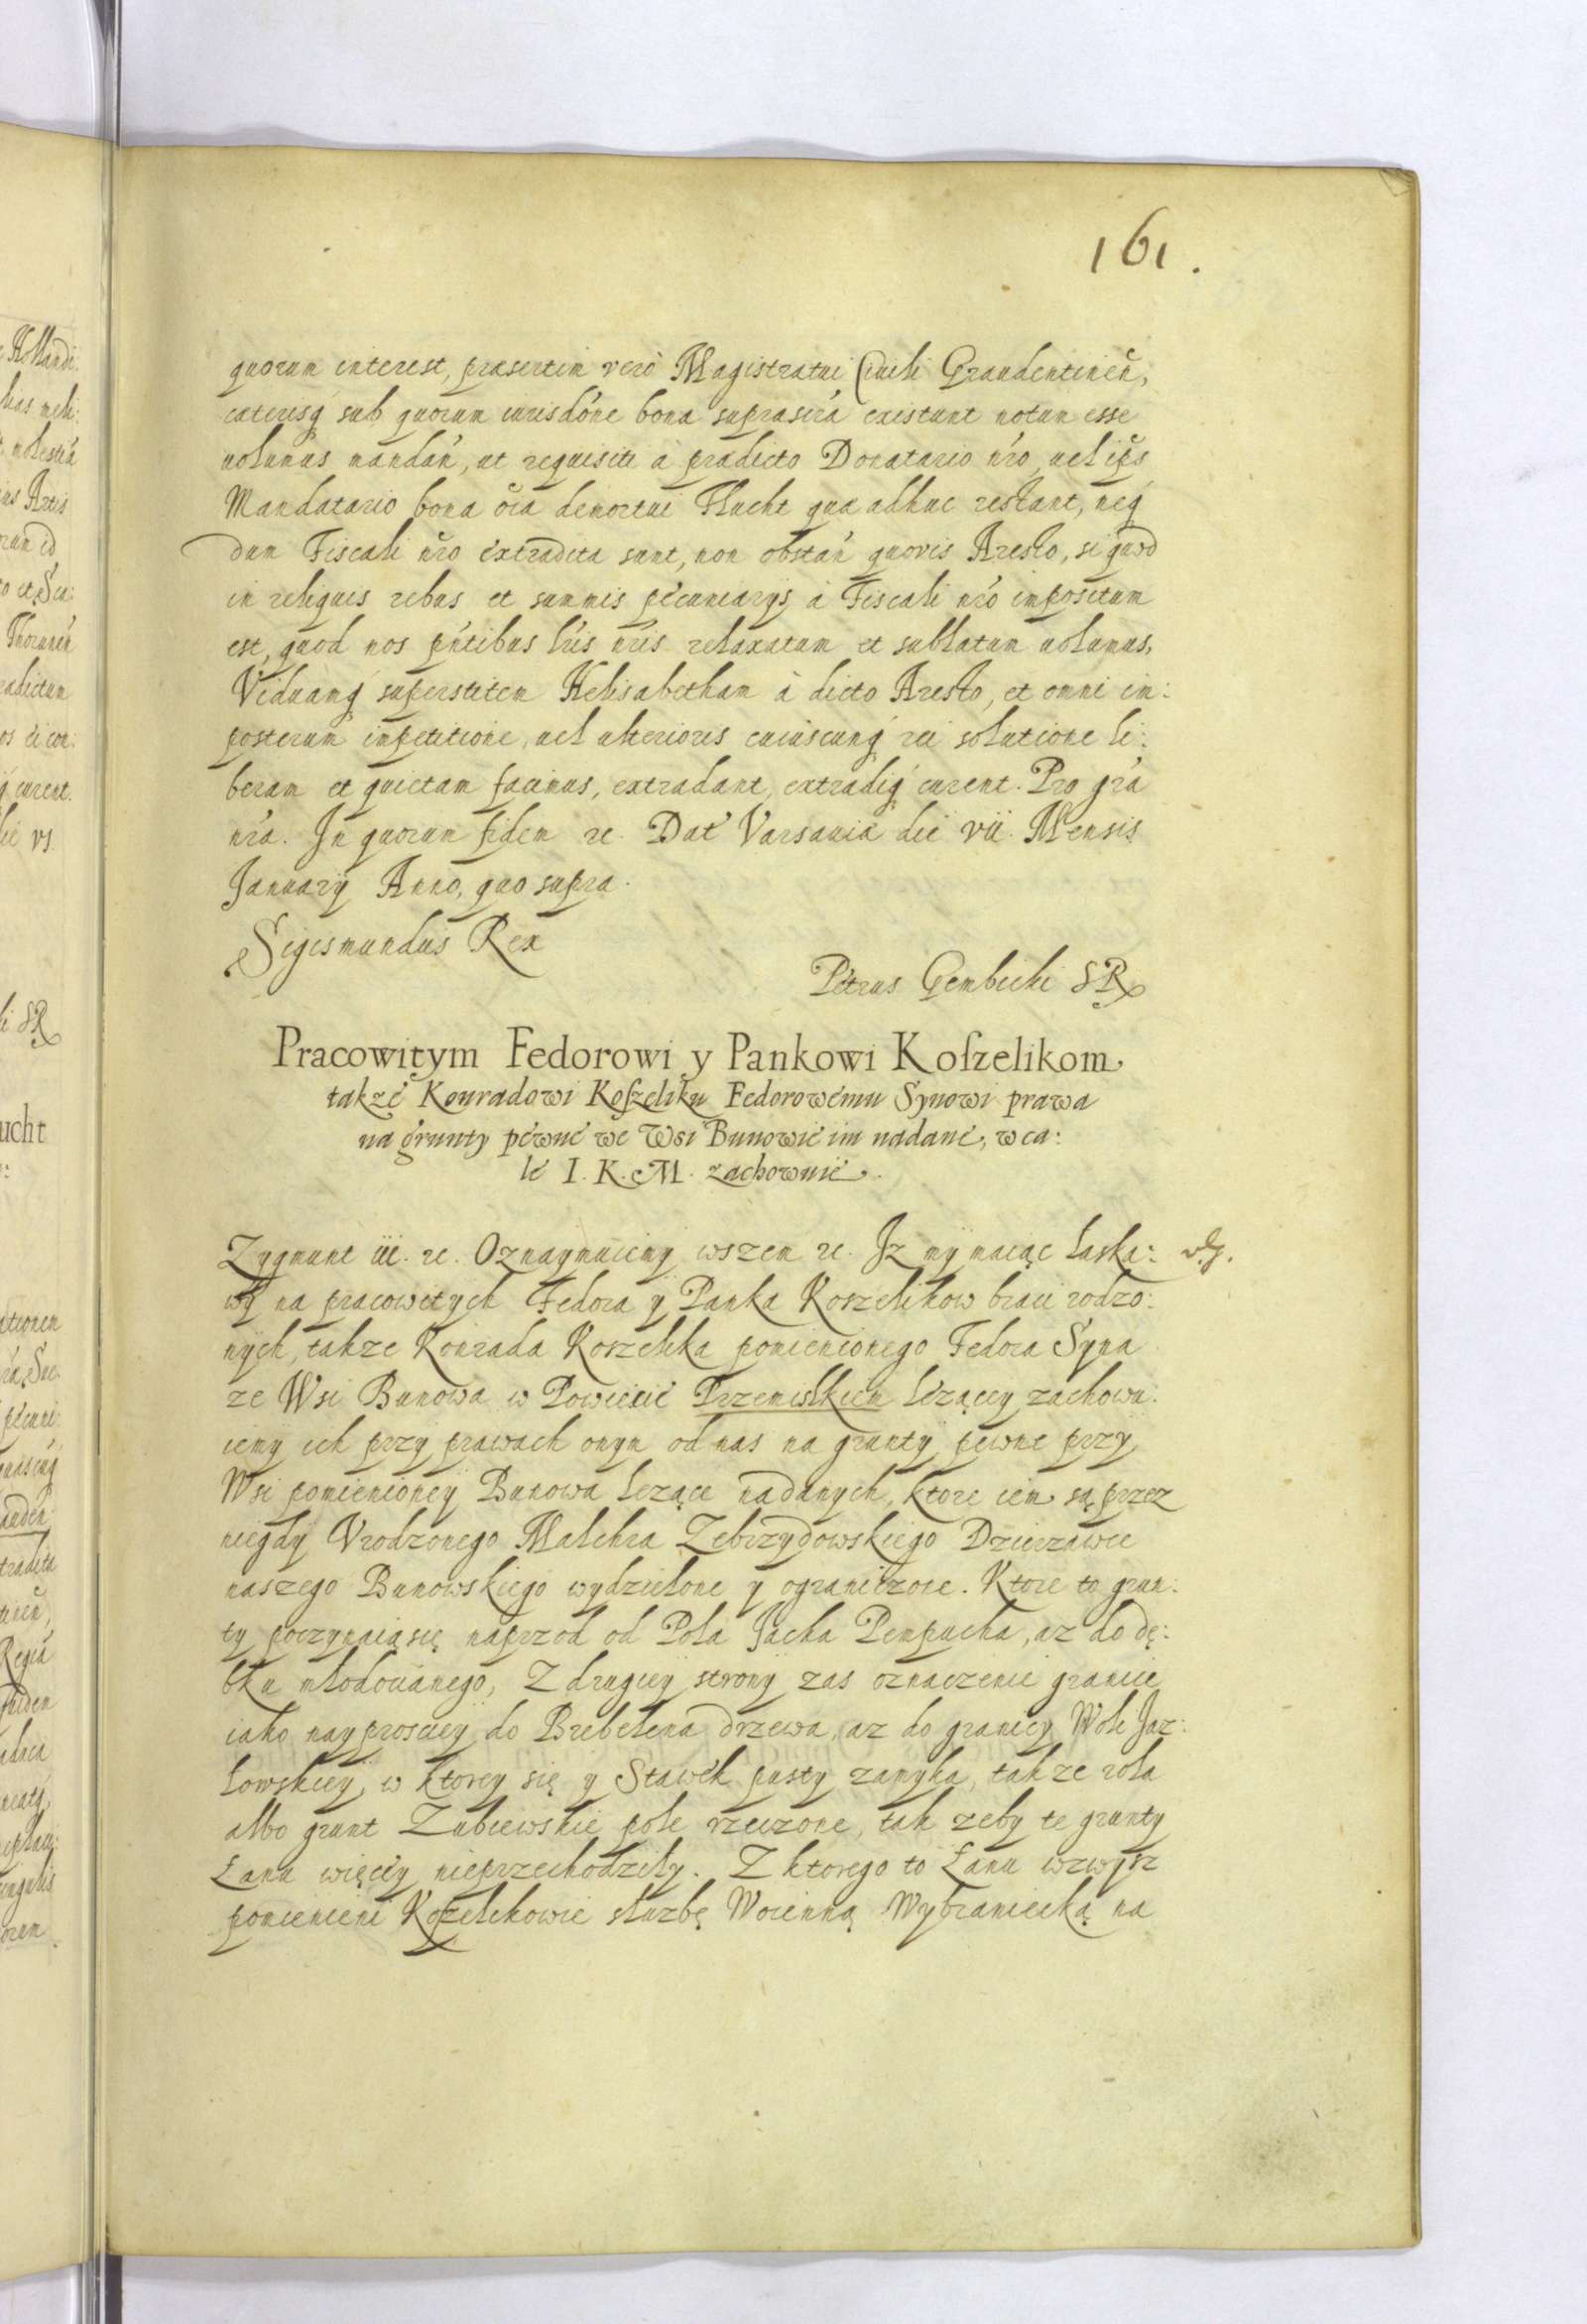 161.
quorum interest, præsertim verò Magistratui Ciuili Graudentineñ,
cæterisq́ sub quorum iurisdóne bona suprascrá existunt notum esse
uolumus mandań, ut requisiti à prædicto Donatario nŕo, uel ipś
Mandatario bona oĩa demortui Flucht quæ adhuc restant, neq́
dum Fiscali nŕo extradita sunt, non obstań quovis Aresto, si quod
in reliquis rebus et summis pecuniarys à Fiscali nŕo impositum
est, quod nos pńtibus lŕis nŕis relaxatum et sublatum uolumus,
Viduamq́ superstitem Helisabetham à dicto Aresto, et omni im:
posterum impetitione, uel ulterioris cuiuscunq́ rei solutione li:
beram et quietam facimus, extradant, extradiq́ curent. Pro grá
nŕa. In quorum fidem ꝛc. Dat Varsauiæ die vii. Mensis
Januarÿ Anno, quo supra.
Sigismundus Rex
Petrus Gembicki SR
Pracowitym Fedorowi y Pankowi Koſzelikom
także Konradowi Koſzeliku Fedorowemu Synowi prawa
na grunty pewne we Wsi Bunowie im nadane, w ca:
le I. K. M. zachownie.
Zygmunt iii. ꝛc. Oznaymuiemy wszem ꝛc. Jz my maiąc łaska:
wy na pracowitych Fedora y Panka Koszelikow braci rodzo:
nych, takze Konrada Koszelika pomienionego Fedora Syna
ze Wsi Bunowa w Powiecie Przemislkiem lezącey zachowu:
iemy ich przy prawach onym od nas na grunty pewne przy
Wsi pomienioney Bunowa lezące nadanych, ktore iem są przez
niegdy Vrodzonego Malchra Zebrzydowskiego Dzierzawce
naszego Bunowskiego wydzielone y ograniczone. Ktore to grun:
ty poczynaią się naprzod od Pola Jacka Pempucha, az do dę:
bku młodocianego, Z drugiey strony zas oznaczenie granice
iako nayprosciey do Brebelena drzewa, az do granicy Wole Jaz:
łowskiey, w ktorey się y Stawek pusty zamyka, takze rola
albo grunt Zubiewskie pole rzeczone, tak zeby te grunty
Łanu więcey nieprzechodziły. Z ktorego to Łanu wzwysz
pomienieni Koſzelikowie służbę Woienną Wybraniecką na